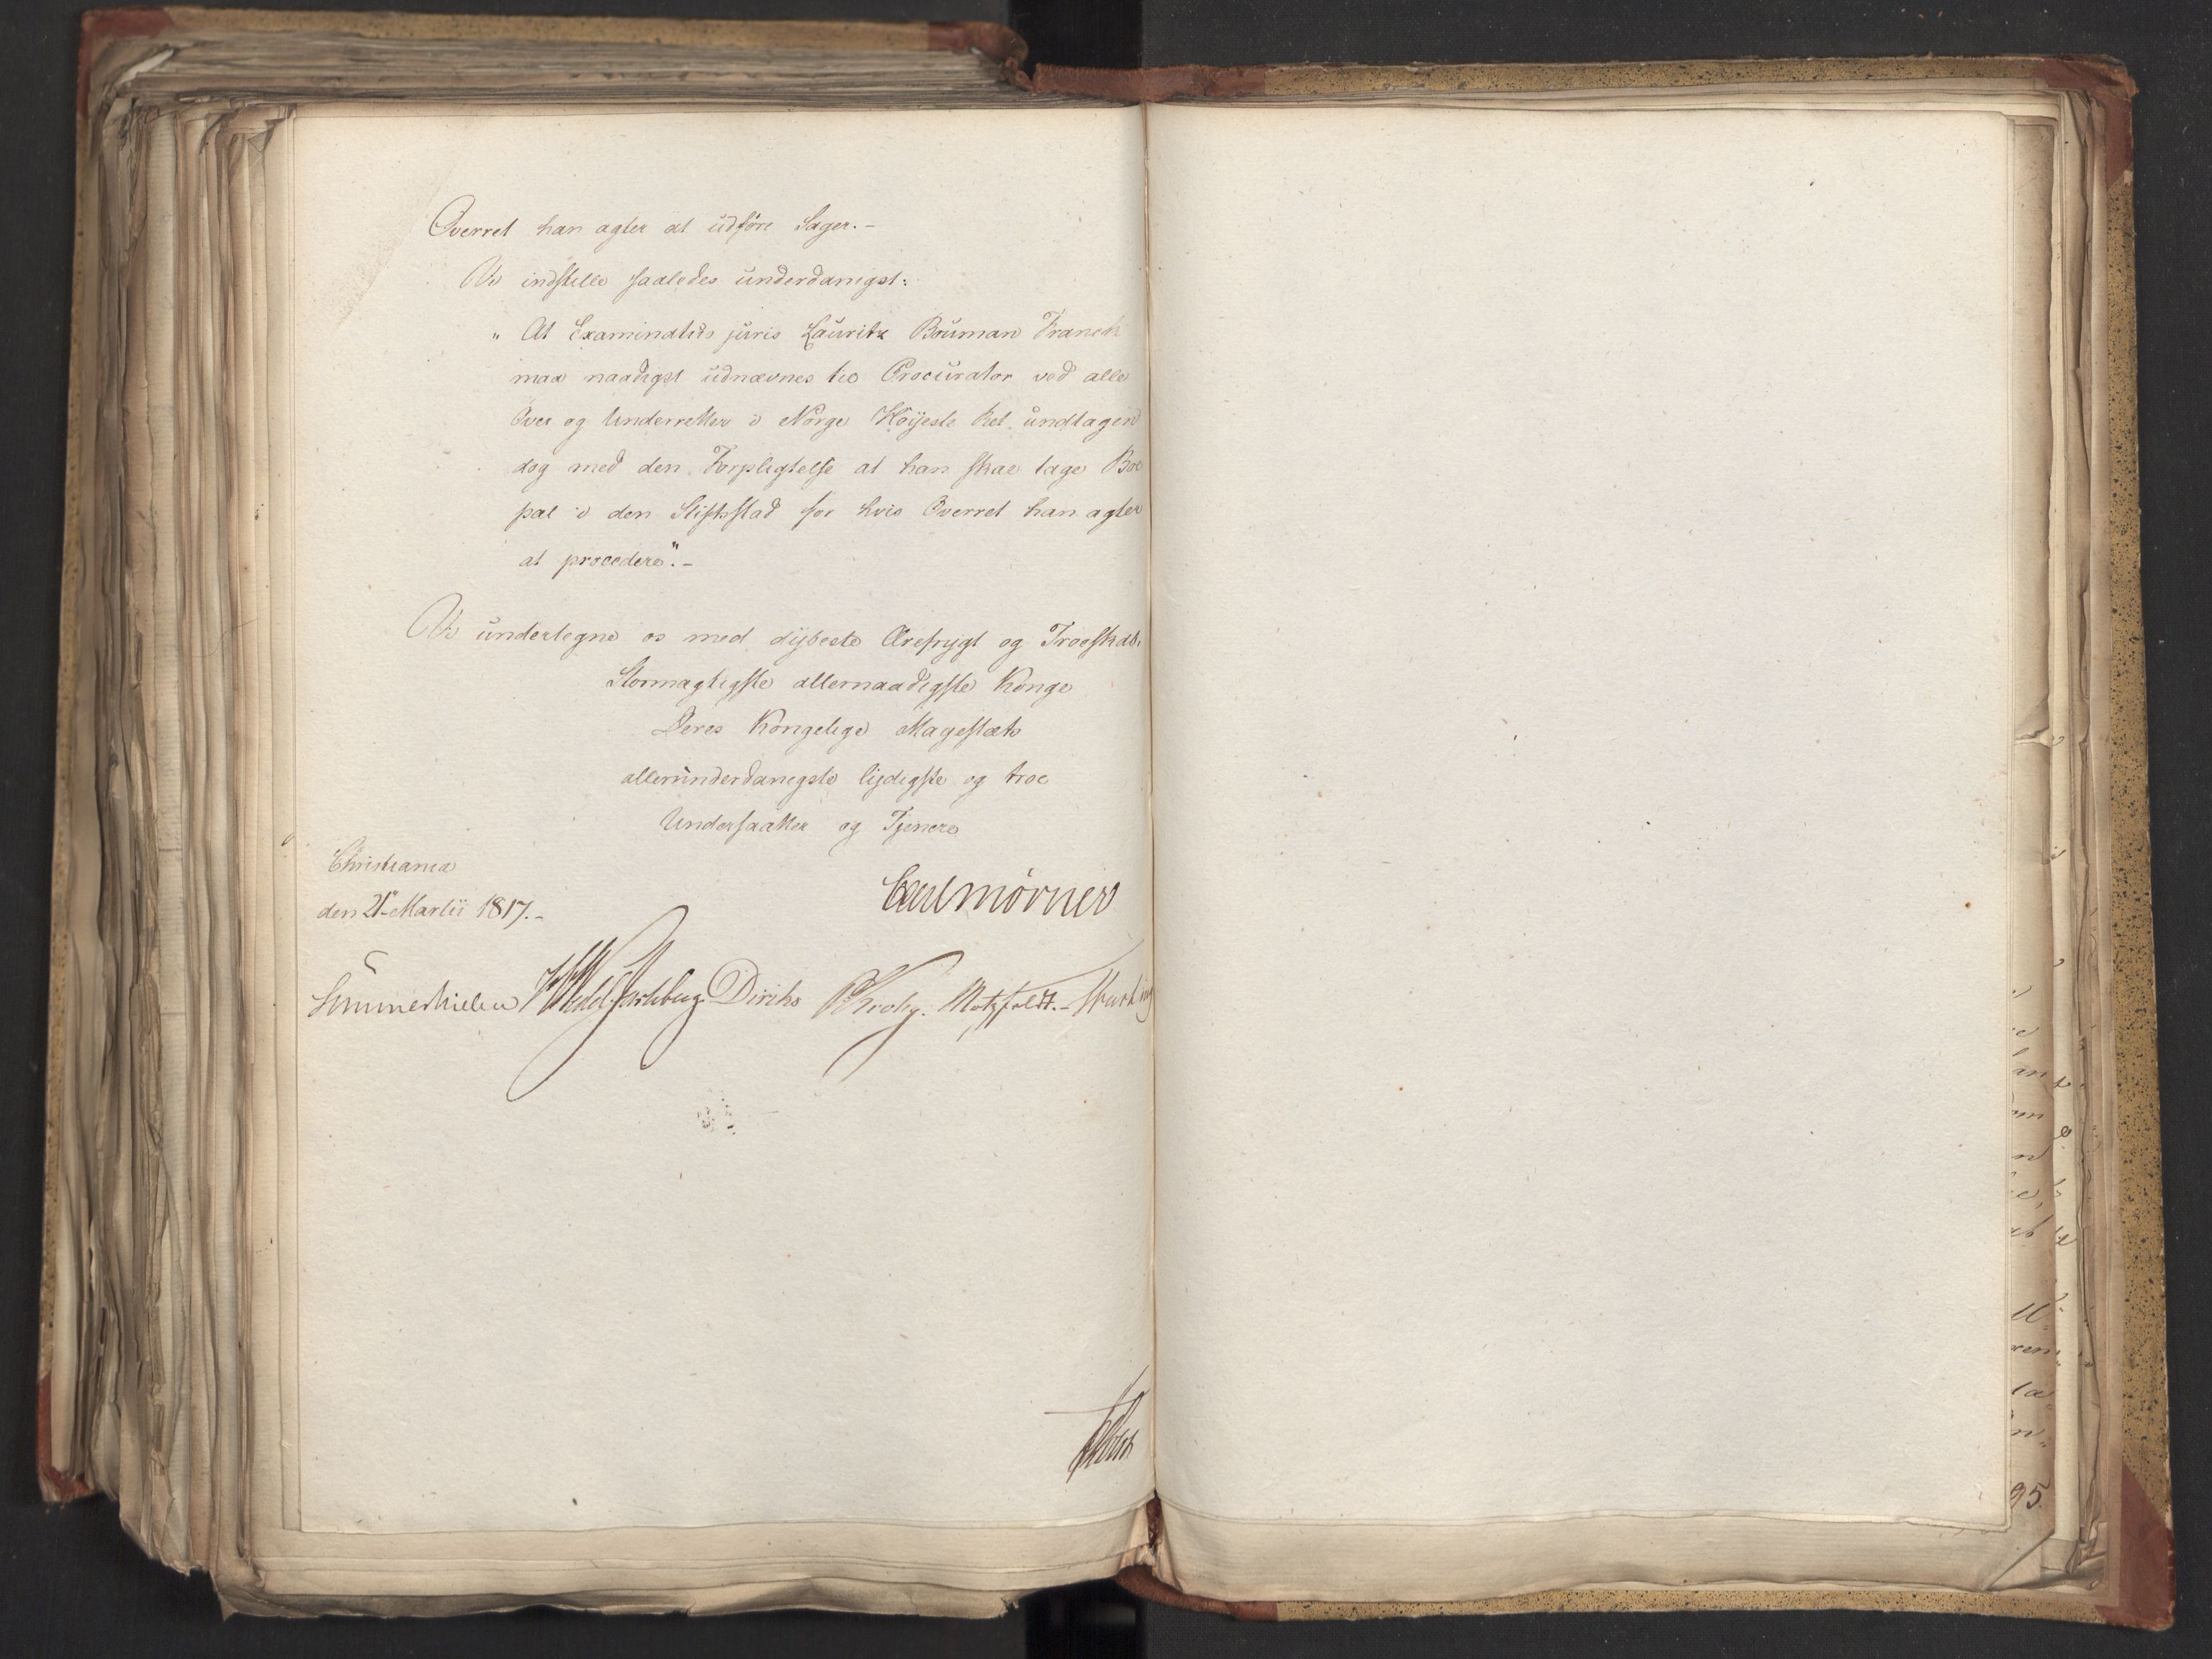 Overret han agter at udføre Sager.-
Vi indstille saaledes underdanigst:
" At Examinatus juris Lauritz Bruman Franck
maa naadigst udnævnes til Procurator ved alle
Over og Underretter i Norge Höijeste Ret undtagen
dog med den Forpligtelse at han skal tage Boe
pæl i den Stiftsstad for hvis Overret han agter
at procedere".-
Vi undertegne os med dijbeste Ærefrygt og Troeskab.
Stormægtigste allernaadigste Konge
Deres Kongelige Magestæts
allerunderdanigste lijdigste og troe
Undersaatter og Tjenere
Christiania
den 21de Martii 1817.-
Carl Mörner
Sommerhielm HWedel Jarlsberg Diriks Krohg. Motzfeldt.-
95.